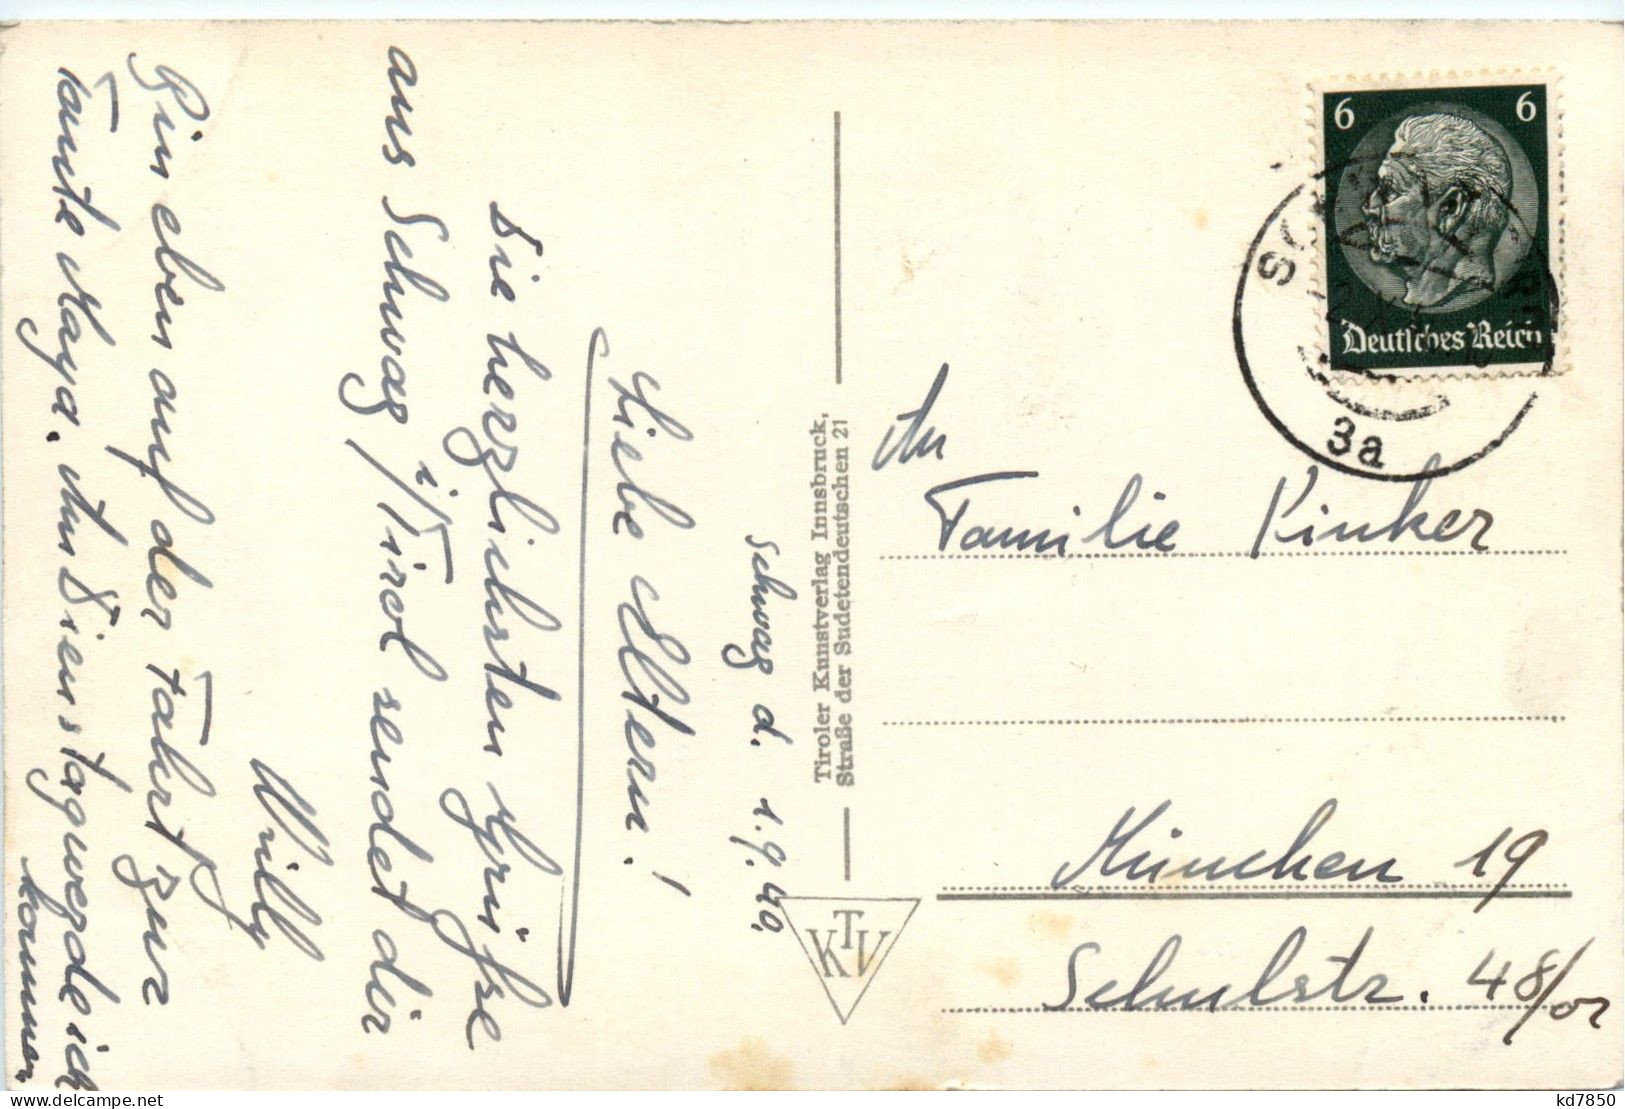 Schwaz d. 1.9.40.
Liebe Eltern!
Die herzlichsten Grüße
aus Schwaz i/Tirol sendet dir
Willy
Bin eben auf der Fahrt zur
Tante Maya. Am Dienstag werde ich
kommen.
Tiroler Kunstverlag Innsbruck,
Straße der Sudetendeutschen 21
KTV
6 6
Deutsches Reich
3a
An
Familie Pinker
München 19
Schulstr. 48/or
kd7850